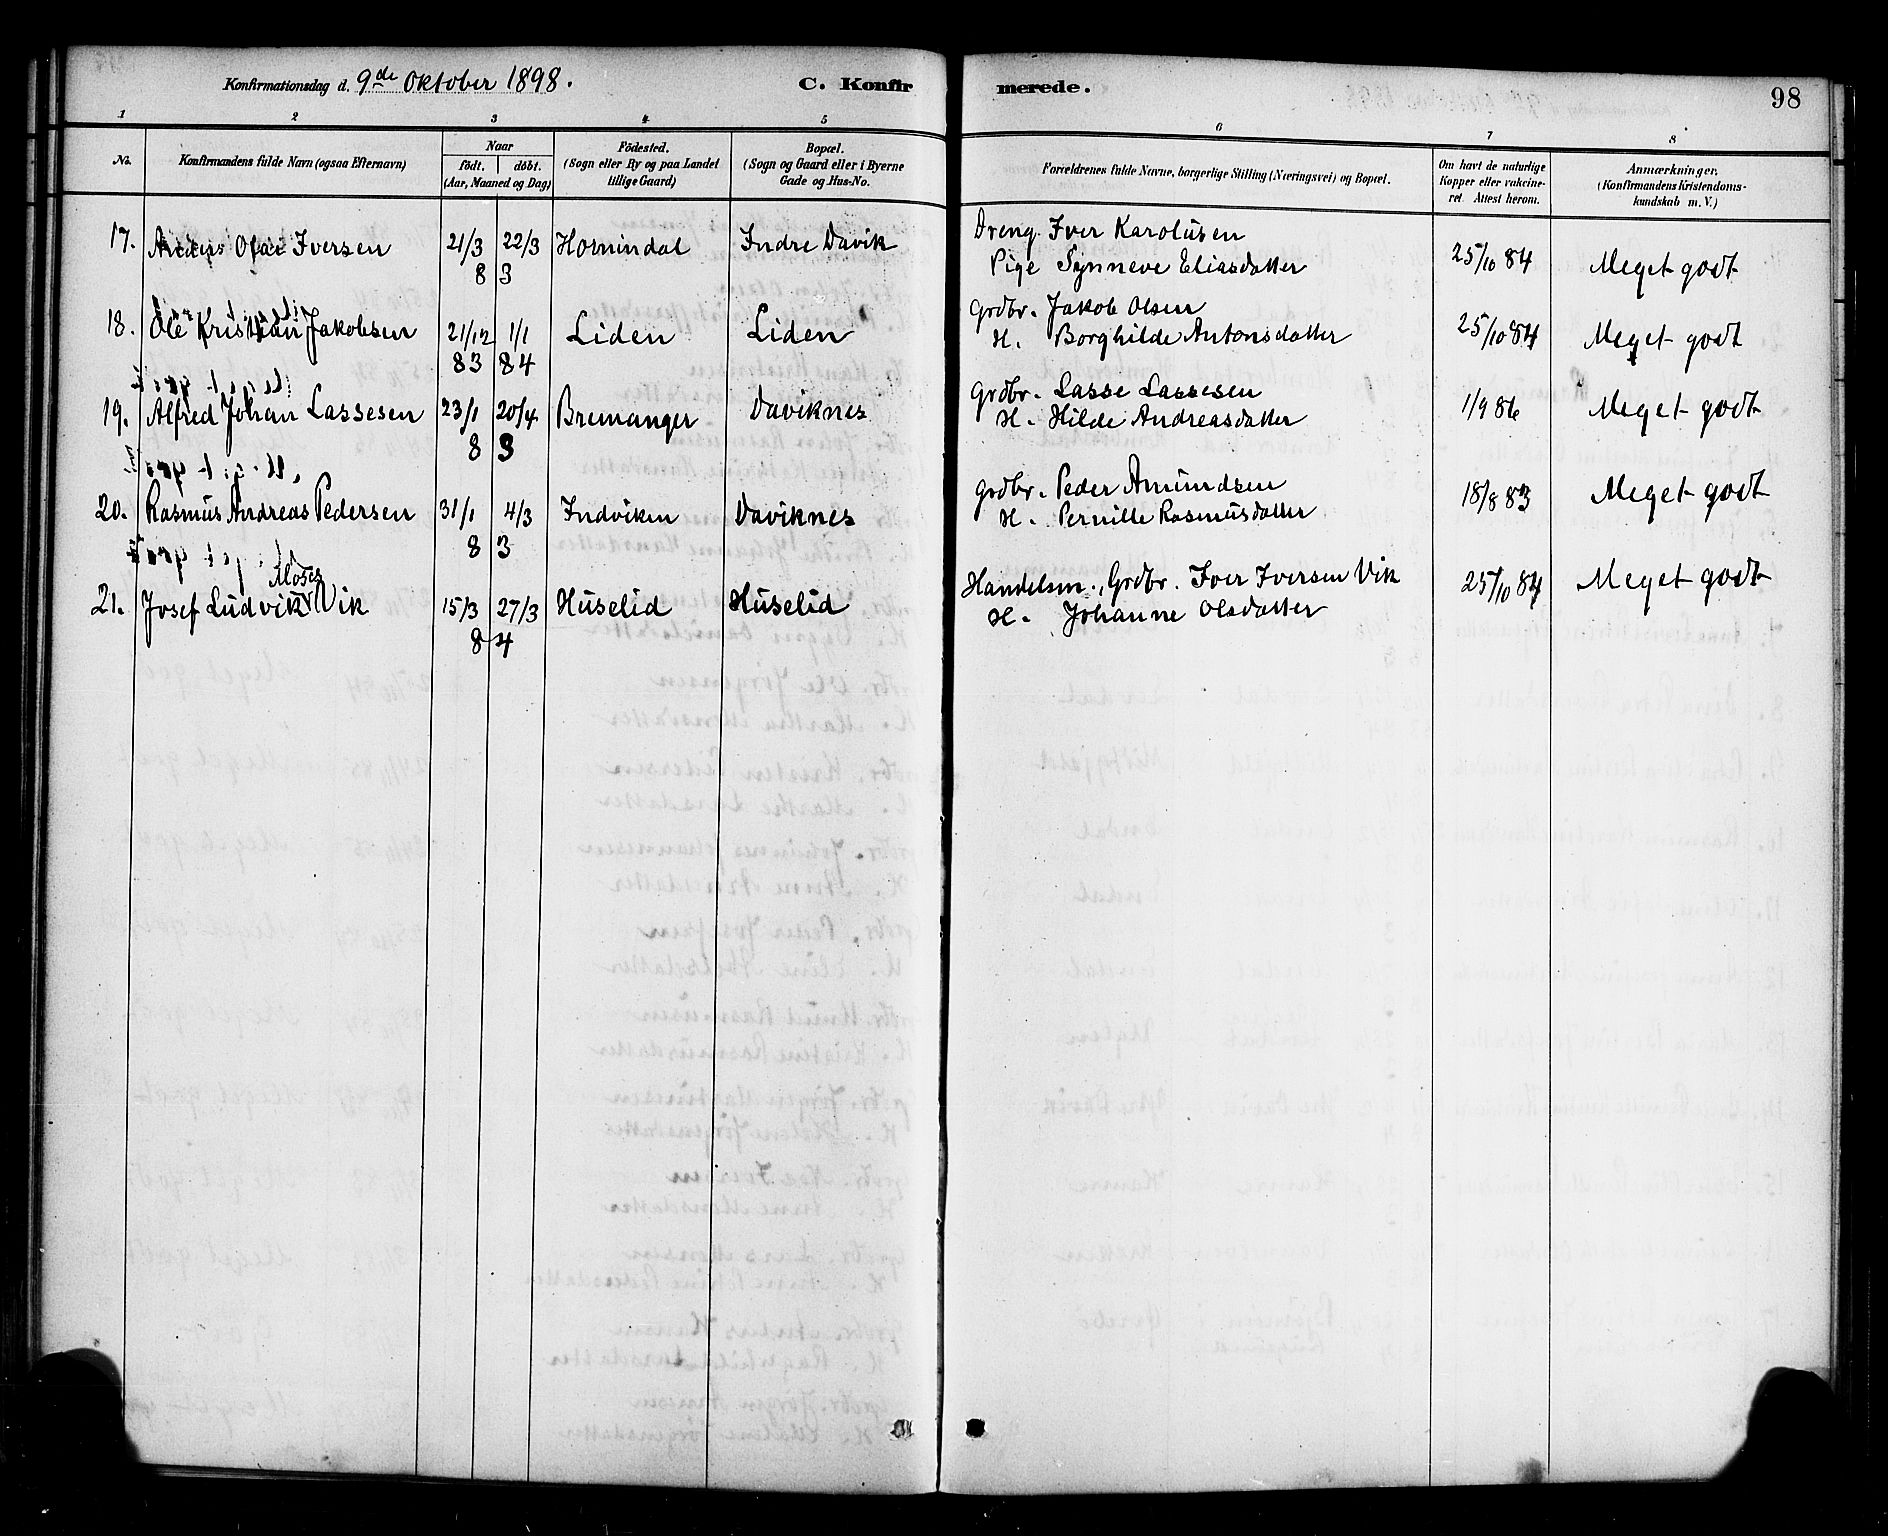 Konfirmationsdag d. 9de Oktober 1898. C. Konfirmerede. 98
1 2 3 4 5 6 7 8
No. Konfirmandens fulde Navn (ogsaa Efternavn) Naar født. døbt. (Aar, Maaned og Dag) Fødested. (Sogn eller By og paa Landet tillige Gaard) Bopæl. (Sogn og Gaard eller i Byerne Gade og Hus-No. Forældrenes fulde Navne, borgerlige Stilling (Næringsvei) og Bopæl. Om havt de naturlige Kopper eller vakcineret. Attest herom. Anmærkninger. (Konfirmandens Kristendomskundskab m. V.)
17. Anders Olai Iversen 21/3 22/3 Hornindal Indre Davik Dreng Iver Karolusen 25/10 84 Meget godt
8 3 Pige Synneve Eliasdatter
18. Ole Kristian Jakobsen 21/12 1/1 Liden Liden Grdbr. Jakob Olsen 25/10 84 Meget godt
83 84 H. Borghilde Antonsdatter
19. Alfred Johan Lassesen 23/1 20/4 Bremanger Daviknes Grdbr. Lasse Lassesen 1/9 86 Meget godt
8 3 H. Hilde Andreasdatter
20. Rasmus Andreas Pedersen 31/1 4/3 Indviken Daviknes Grdbr. Peder Amundsen 18/8 83 Meget godt
8 3 H. Pernille Rasmusdatter
Moses
21. Josef Ludvik Vik 15/3 27/3 Huselid Huselid Handelsm., Grdbr. Iver Iversen Vik 25/10 84 Meget godt
8 4 H. Johanne Olsdatter